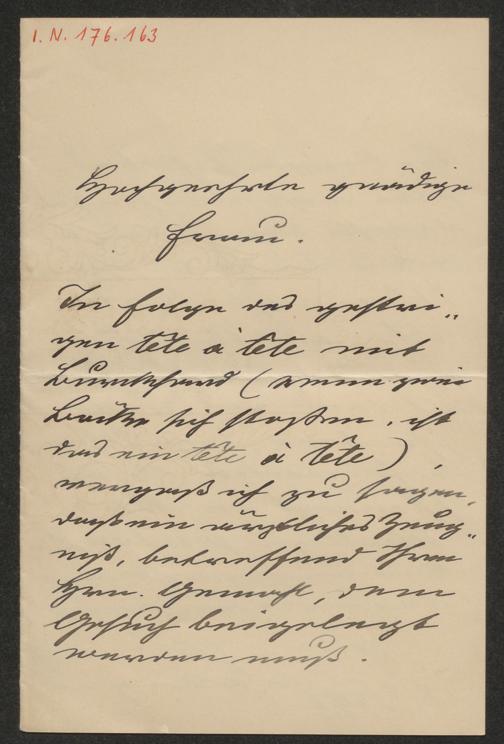 I. N. 176.163
Hochgeehrte gnädige
Frau.
In Folge des gestri„
gen tête à tête mit
Burckhard (wenn zwei
Böcke sich stoßen, ist
das ein tête à tête),
vergaß ich zu sagen,
daß ein ärztliches Zeug„
niß, betreffend Ihren
Hrn. Gemahl, dem
Gesuch beigelegt
werden muß.